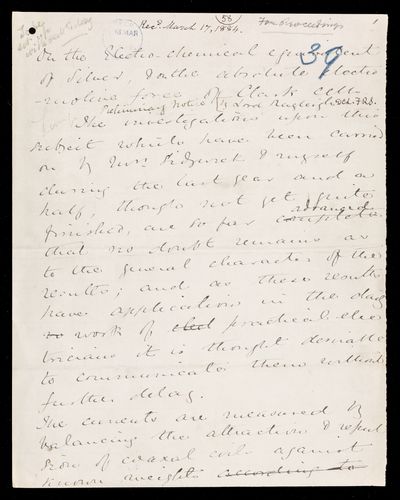 56
Recd. March 17, 1884.
For Proceedings
1
39
On the Electro-chemical equivalent
of Silver, & on the absolute electro
-motive force of Clark cells.
Preliminary Notice by Lord Rayleigh D.C.L. F.R.S.
The investigations upon this
subject which have been carried
on by Mrs Sidgwick & myself
during the last year and a
half, though not yet quite
advanced
finished, are so far completed
that no doubt remains as
to the general character of the
results; and as these results
have application in the daily
to work of elect practical elec
tricians it is thought desirable
to communicate them without
further delay.
The currents are measured by
balancing the attraction & repul
sion of coaxal coils against
known weights according to